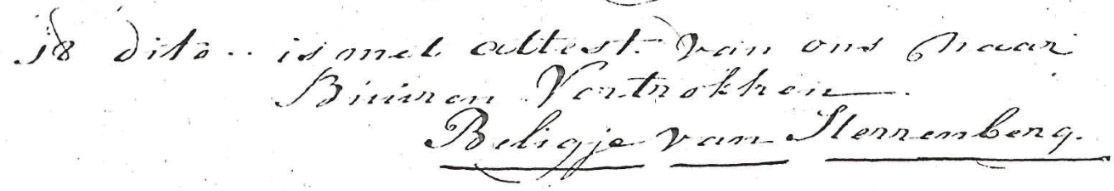 18 dito .. is met attest van ons naar
Buuren Vertrokken
Beligje van Sterrenberg.